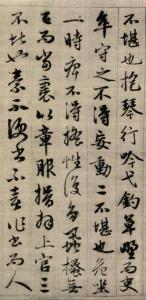 不堪也抱琴行吟弋釣草野而吏
卒守之不得妄動二不堪也危坐
一時痹不得搖性復多虱搔無
已而當裹以章服揖拜上官三
不堪也素不便書又不喜作書而人